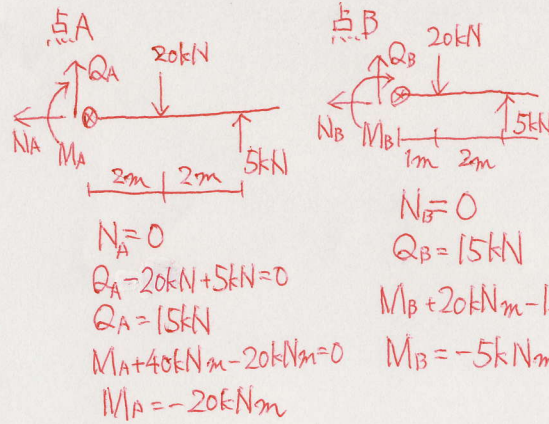 点A
20kN
QA
NA
MA
5kN
2m 2m
NA=0
QA-20kN+5kN=0
QA=15kN
MA+40kNm-20kNm=0
MA=-20kNm
点B
20kN
QB
NB
MB
5kN
1m 2m
NB=0
QB=15kN
MB+20kNm-1
MB=-5kNm